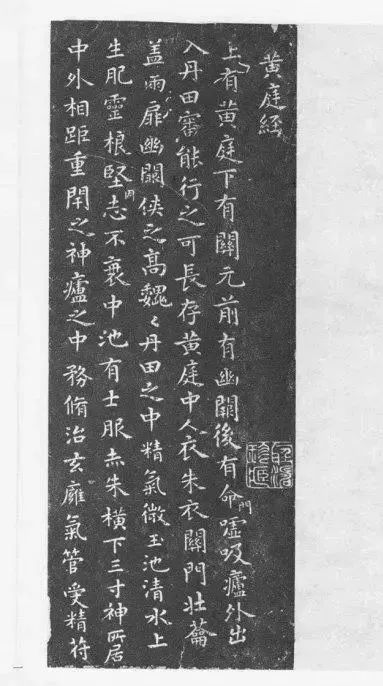 黃庭經
上有黃庭下有關元前有幽關後有命門噓吸廬外出
入丹田審能行之可長存黃庭中人衣朱衣關門壯蘥
盖兩扉幽關俠之高魏〻丹田之中精氣微玉池清水上
生肥靈根堅志不衰中池有士服赤朱橫下三寸神所居
中外相距重閇之神廬之中務脩治玄廱氣管受精符